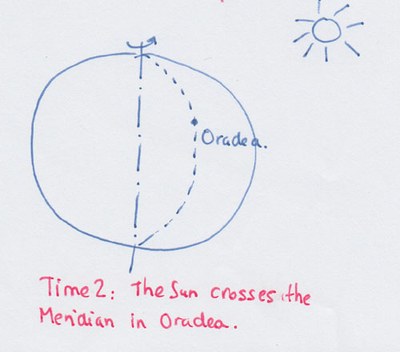 Oradea.
Time 2: The Sun crosses the
Meridian in Oradea.